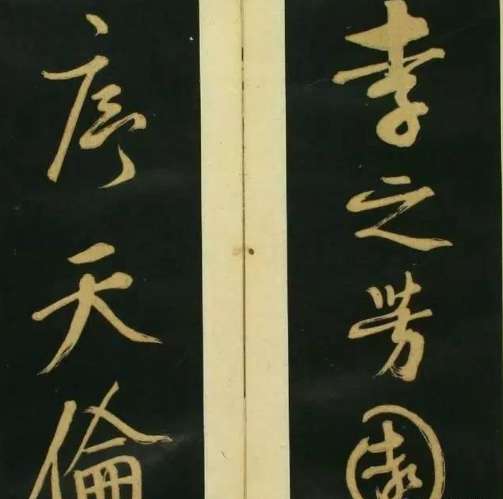 李之芳園
序天倫